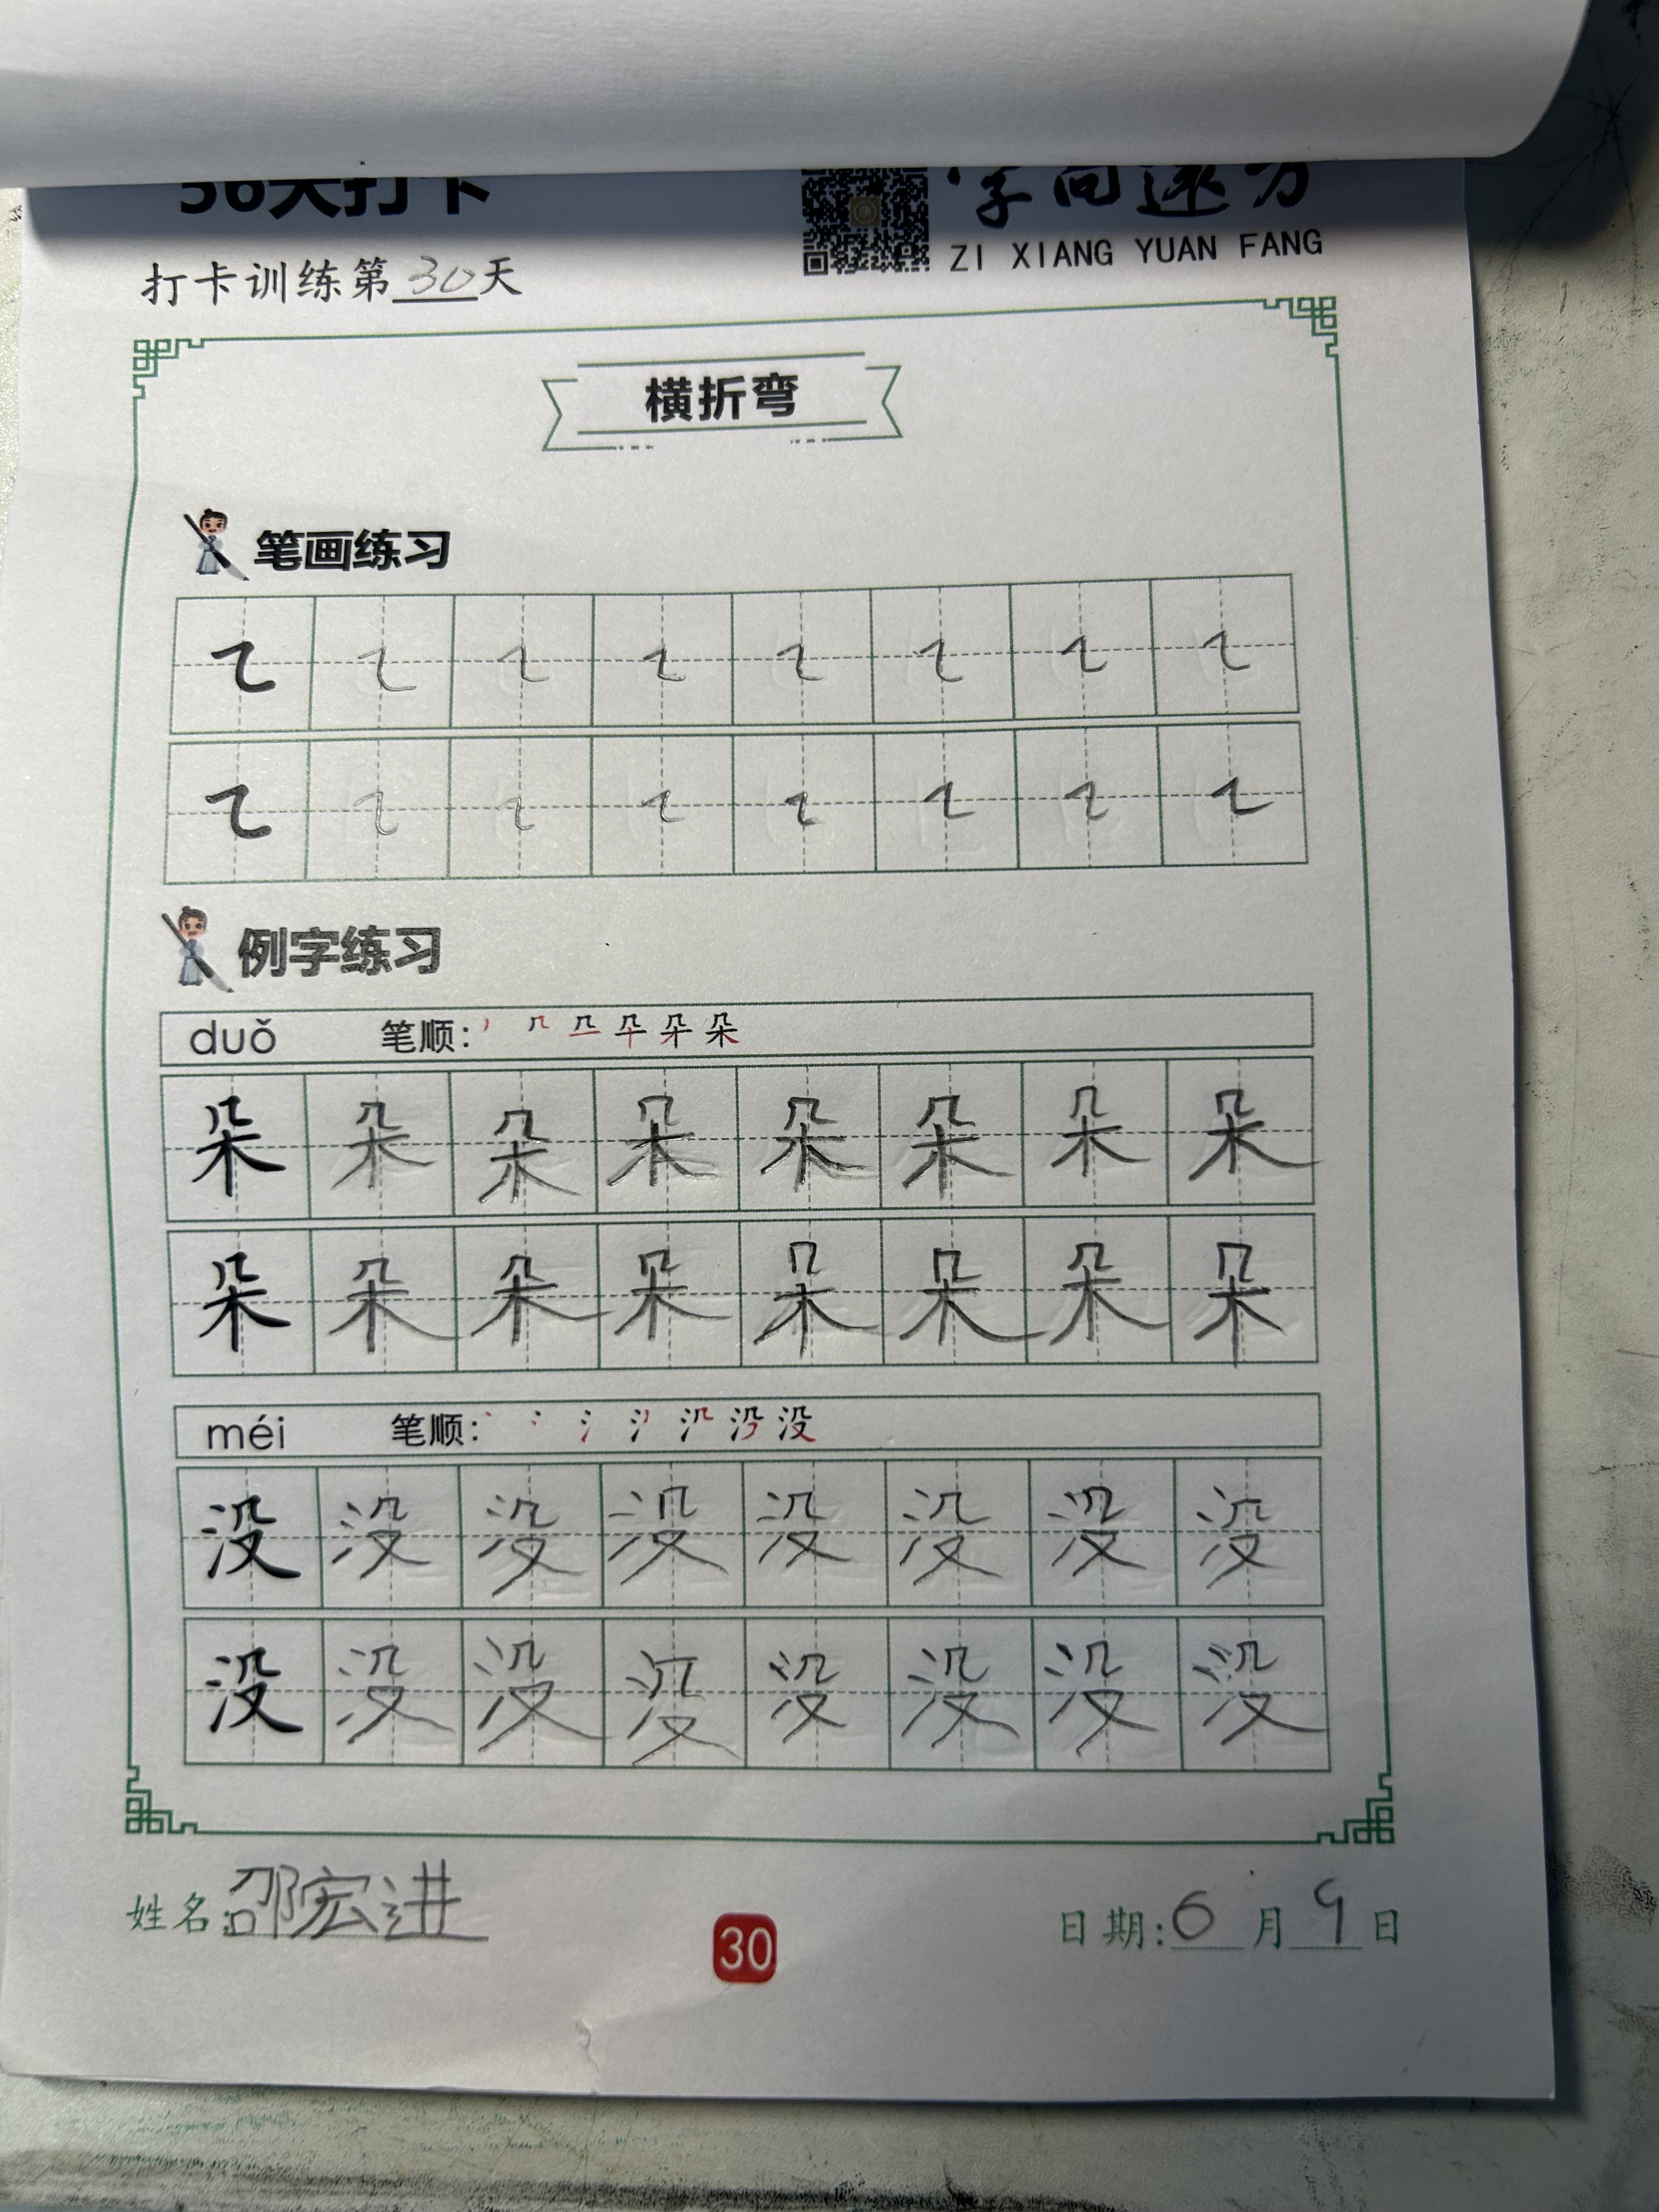 56天打卡
字向远方
ZI XIANG YUAN FANG
打卡训练第30天
横折弯
笔画练习
㇍ ㇍ ㇍ ㇍ ㇍ ㇍ ㇍ ㇍
㇍ ㇍ ㇍ ㇍ ㇍ ㇍ ㇍ ㇍
例字练习
duǒ 笔顺:
朵 朵 朵 朵 朵 朵 朵 朵
朵 朵 朵 朵 朵 朵 朵 朵
méi 笔顺:
没 没 没 没 没 没 没 没
没 没 没 没 没 没 没 没
姓名:邵宏进
30
日期:6月9日